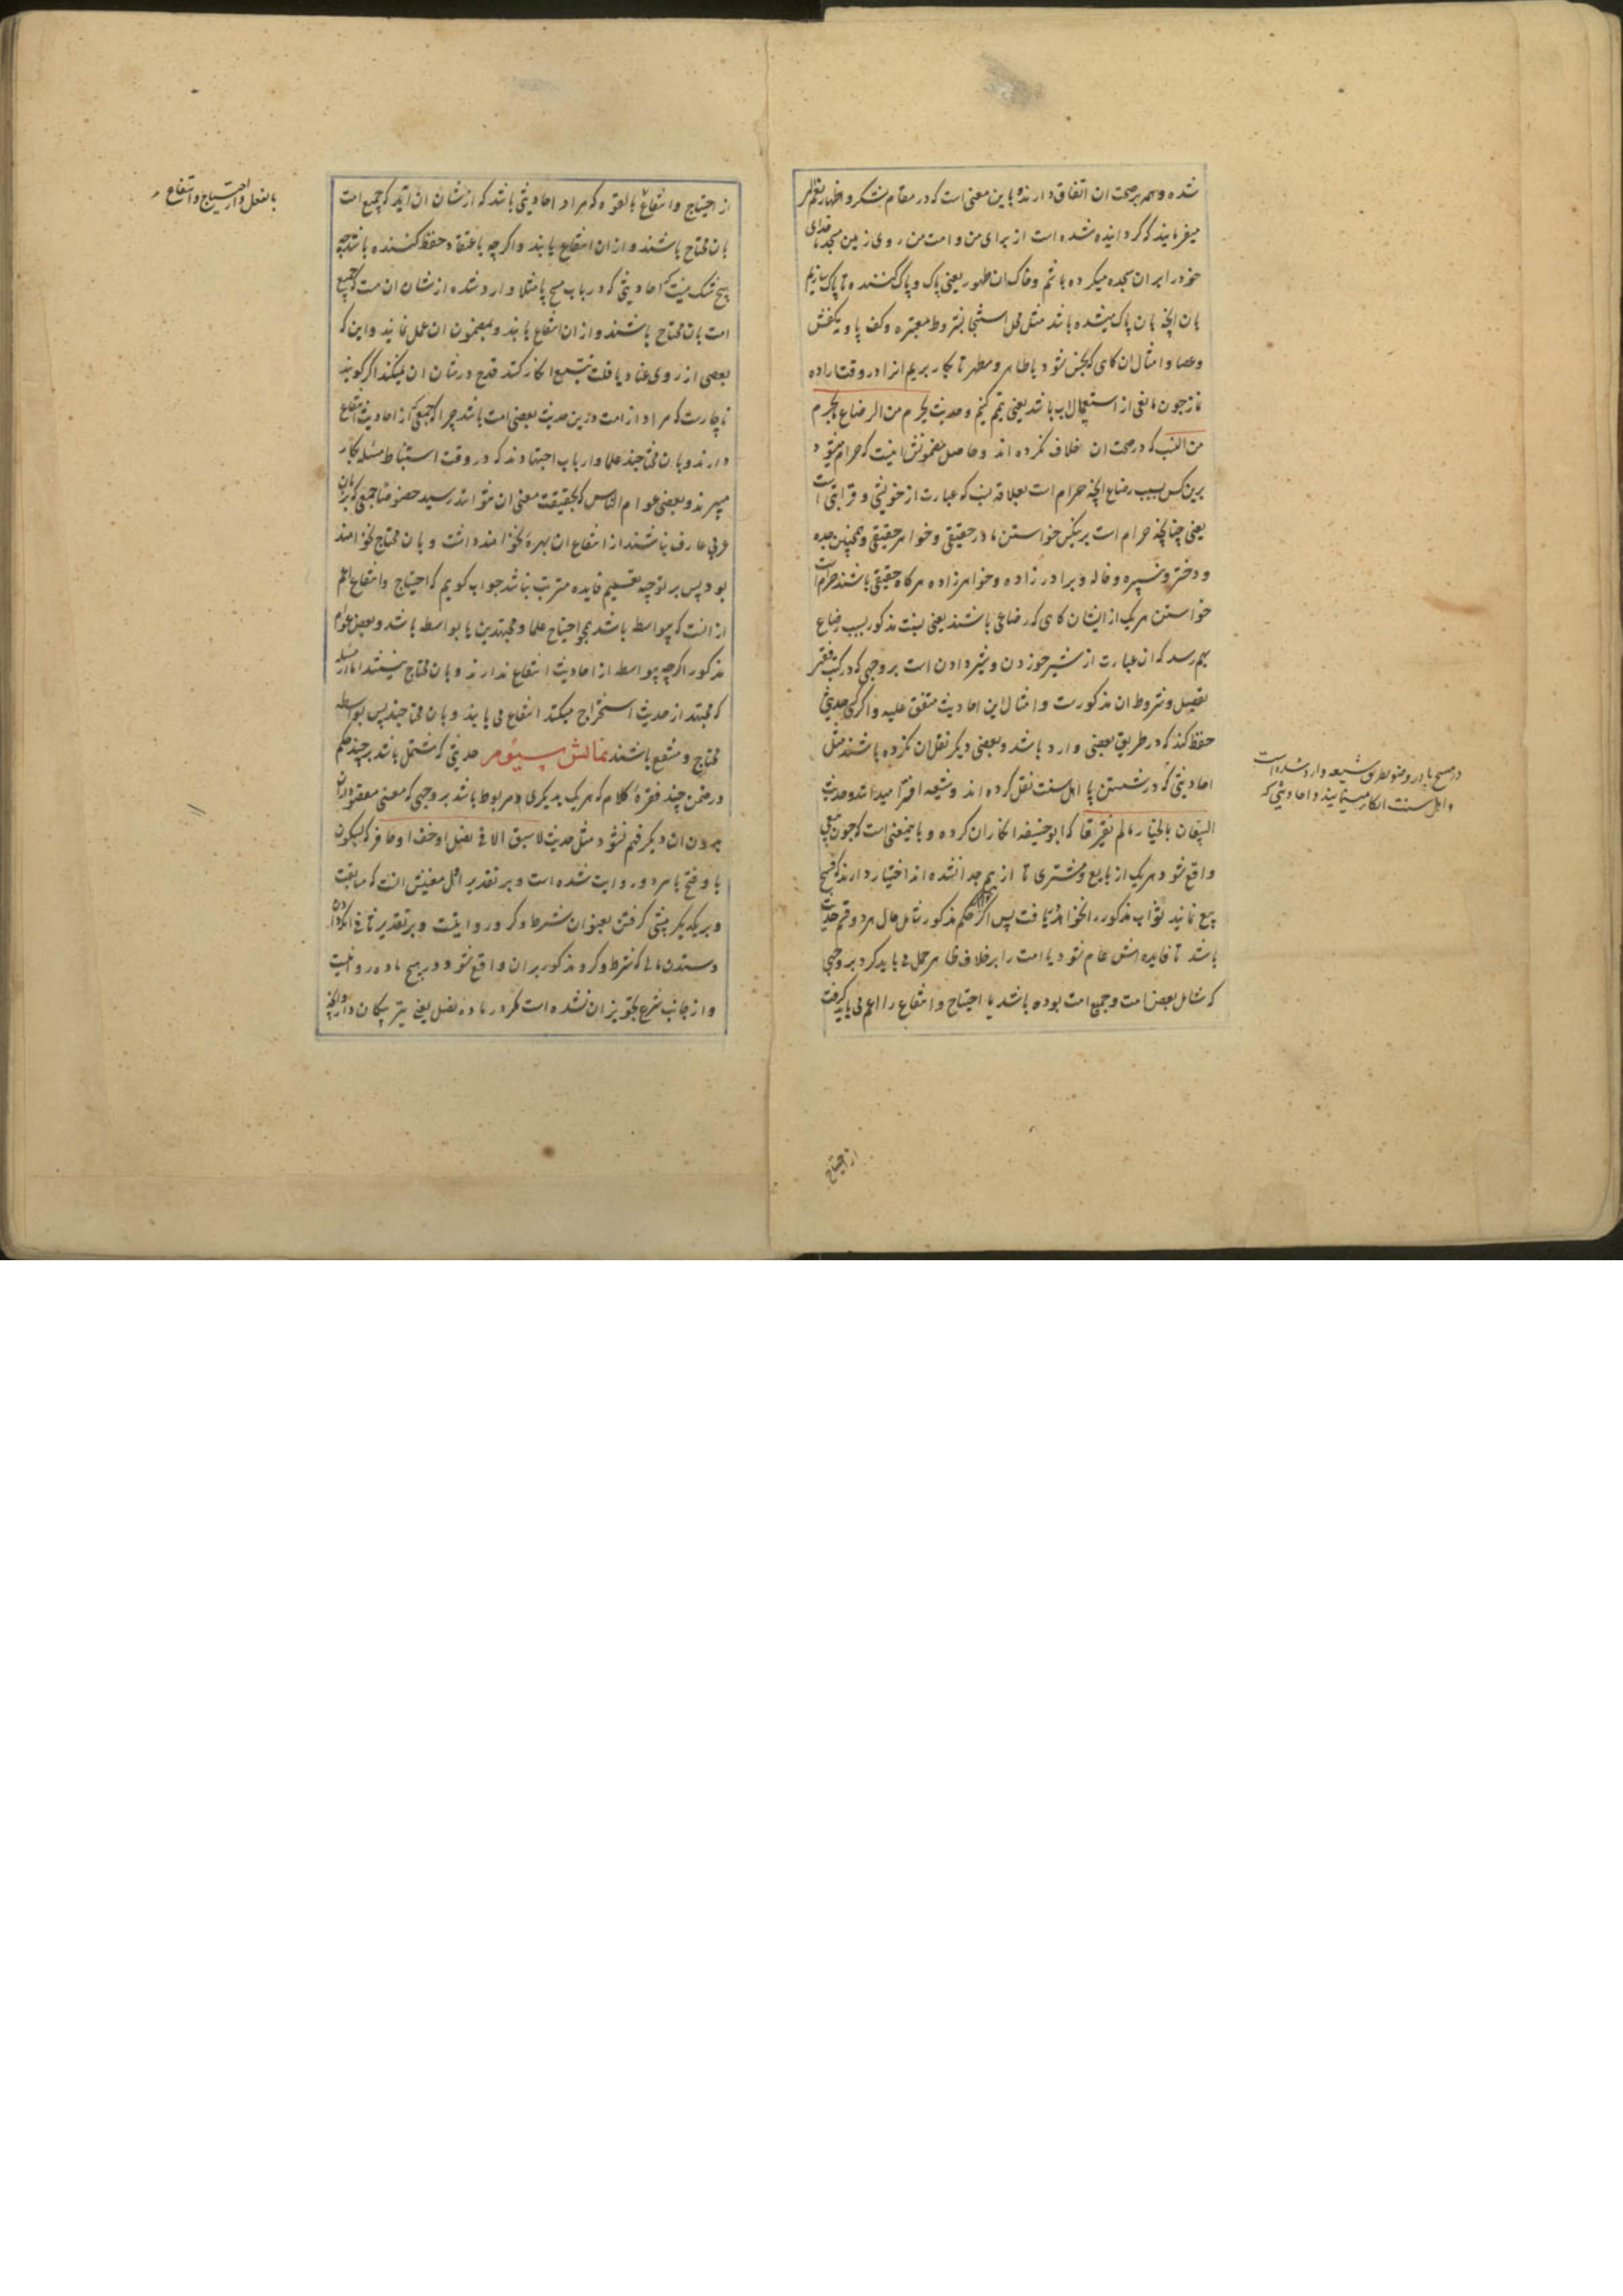 شده و همه بر صحت ان اتفاق دارند و باین معنی است که در مقام شکر و اظهار نعم
میفرمایند که کردانیده شده است از برای من و امت من روی زمین مسجد تا خدای
خود را بر ان سجده میکرده باشم و خاک ان طهور یعنی پاک و پاک کننده تا پاک سازیم
بان انچه بان پاک میشده باشد مثل محل استنجا بشروط معتبره و کف پا و ته کفش
و عصا و امثال ان کاهی که نجس شود یا طاهر و مطهر تا بکار بریم انرا در وقت اراده
نماز چون مانعی از استعمال اب باشد یعنی تیمم کنیم و حدیث یحرم من الرضاع ما یحرم
من النسب که در صحت ان خلاف نکرده اند و حاصل مضمونش اینست که حرام میشود
برین کس بسبب رضاع انچه حرام است بعلاقه نسب که عبارت از خویشی و قرابتی است
یعنی چنانچه حرام است بر یکی خواستن مادر حقیقی و خواهر حقیقی و همچنین جده
و دختر و نبیره و خاله و برادر زاده و خواهر زاده هر کاه حقیقی باشند حرام است
خواستن هر یک از ایشان کاهی که رضاعی باشند یعنی نسبت مذکور بسبب رضاع
بهم رسد که ان عبارت از شیر خوردن و شیر دادن است بر وجهی که در کتب فقه
تفصیل و شروط ان مذکورست و امثال این احادیث متفق علیه و اکر کسی حدیثی
حفظ کند که در طریق بعضی وارد باشد و بعضی دیکر نقل ان نکرده باشند مثل
احادیثی که در شستن پا اهل سنت نقل کرده اند و شیعه افترا میدانند و حدیث
البیعان بالخیار ما لم یفترقا که ابو حنیفه انکار ان کرده و باینمعنی است که چون بیعی
واقع شود هر یک از بایع و مشتری تا از هم جدا نشده اند اختیار دارند که فسخ
بیع نمایند ثواب مذکور را نخواهد یافت پس اکر حکم مذکور شامل حال هر دو قسم حدیث
باشد تا فایده اش عام شود یا امت را بر خلاف ظاهر حمل می باید کرد بر وجهی
که شامل بعض امت و جمیع امت بوده باشد یا احتیاج و انتفاع را اعم می باید کرفت
در مسح پا در وضو بطریق شیعه وارد شده است
و اهل سنت انکار مینمایند و احادیثی که
از احتیاج
از احتیاج و انتفاع بالقوه که مراد احادیثی باشد که از شان ان اید که جمیع امت
بان محتاج باشند و از ان انتفاع یابند و اکر چه باعتقاد حفظ کننده باشد چه
هیچ شک نیست که احادیثی که در باب مسح پا مثلا وارد شده از شان ان هست که جمیع
امت بان محتاج باشند و از ان انتفاع یابند و بمضمون ان عمل نمایند و این که
بعضی از روی عناد یا قلت تتبع انکار کنند قدح در شان ان نمیکند اکر کویند
ناچارست که مراد از امت درین حدیث بعضی امت باشد چرا که جمعی که از احادیث انتفاع
دارند و بان محتاجند علما و ارباب اجتهادند که در وقت استنباط مسئله بکار
میبرند و بعضی عوام الناس که بحقیقت معنی ان نتوانند رسید خصوصا جمعی که بزبان
عربی عارف نباشند از انتفاع ان بهره نخواهند داشت و بان محتاج نخواهند
بود پس بر توجیه تعمیم فایده مترتب نباشد جواب کویم که احتیاج و انتفاع اعم
از انست که بیواسطه باشد همچو احتیاج علما و مجتهدین یا بواسطه باشد و بعض عوام
مذکور اکر چه بیواسطه از احادیث انتفاع ندارند و بان محتاج نیستند اما از مسئله
که مجتهد از حدیث استخراج میکند انتفاع می یابند و بان محتاجند پس بواسطه
محتاج و منتفع باشند نمایش سیوم حدیثی که مشتمل باشد بر چند حکم
در ضمن چند فقره کلام که هر یک بدیکری مربوط باشد بر وجهی که معنی مقصود از ان
بدون ان دیکر فهم نشود مثل حدیث لا سبق الا فی نصل او خف او حافر که بسکون
با و فتح با هر دو روایت شده است و بر تقدیر اول معنیش انست که مسابقت
و بر یکدیکر پیشی کرفتن بعنوان شرط و کرو روا نیست و بر تقدیر ثانی انکه دادن
و ستدن مالی که شرط و کرو مذکور بر ان واقع شود در هیچ ماده روا نیست
و از جانب شرع تجویز ان نشده است مکر در ماده نصل یعنی تیر پیکان دار و انچه
بالفعل و از احتیاج و انتفاع